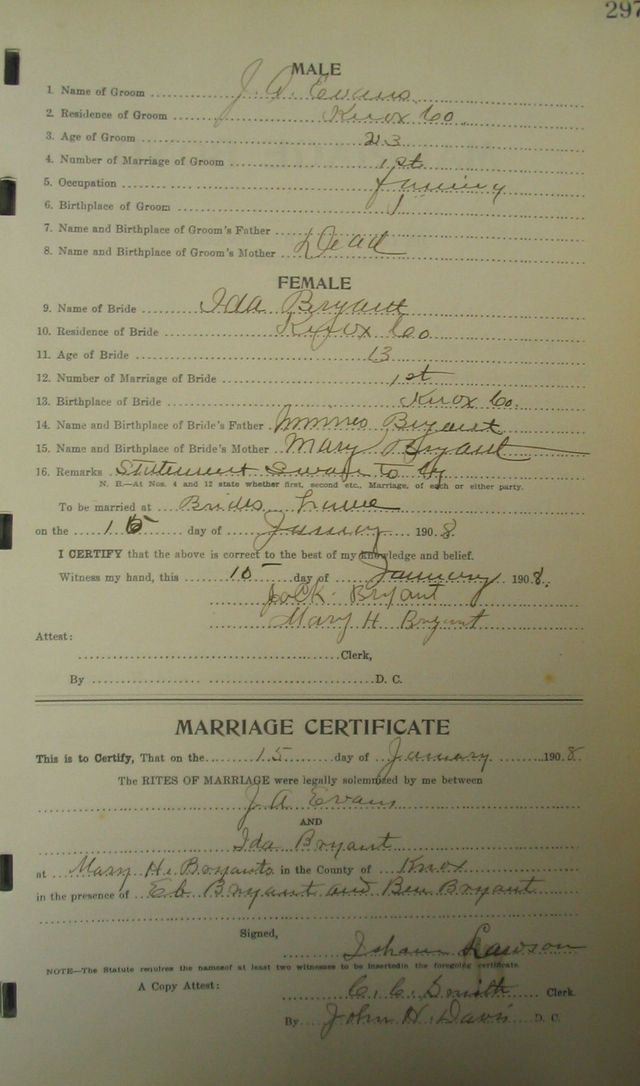 297
MALE
1. Name of Groom J. A. Evans
2. Residence of Groom Knox Co.
3. Age of Groom 23
4. Number of Marriage of Groom 1st
5. Occupation
6. Birthplace of Groom
7. Name and Birthplace of Groom's Father
8. Name and Birthplace of Groom's Mother Dead
FEMALE
9. Name of Bride Ida Bryant
10. Residence of Bride Knox Co
11. Age of Bride 13
12. Number of Marriage of Bride 1st
13. Birthplace of Bride Knox Co.
14. Name and Birthplace of Bride's Father Bryant
15. Name and Birthplace of Bride's Mother Mary Bryant
16. Remarks Statement Swain to by
N. B.—At Nos. 4 and 12 state whether first, second etc., Marriage, of each or either party.
To be married at Brides
on the 15 day of 1908.
I CERTIFY that the above is correct to the best of my knowledge and belief.
Witness my hand, this 15 day of January 1908.
Bryant
Mary H Bryant
Attest:
Clerk,
By D. C.
MARRIAGE CERTIFICATE
This is to Certify, That on the 15 day of January 1908
The RITES OF MARRIAGE were legally solemnized by me between
J A Evans
AND
Ida Bryant
at Mary H. Bryants in the County of Knox
in the presence of Eb Bryant and Ben Bryant
Signed,
Lawson
NOTE—The Statute requires the names of at least two witnesses to be inserted in the foregoing certificate.
A Copy Attest: C. C. Smith Clerk.
By John H. Davis D. C.